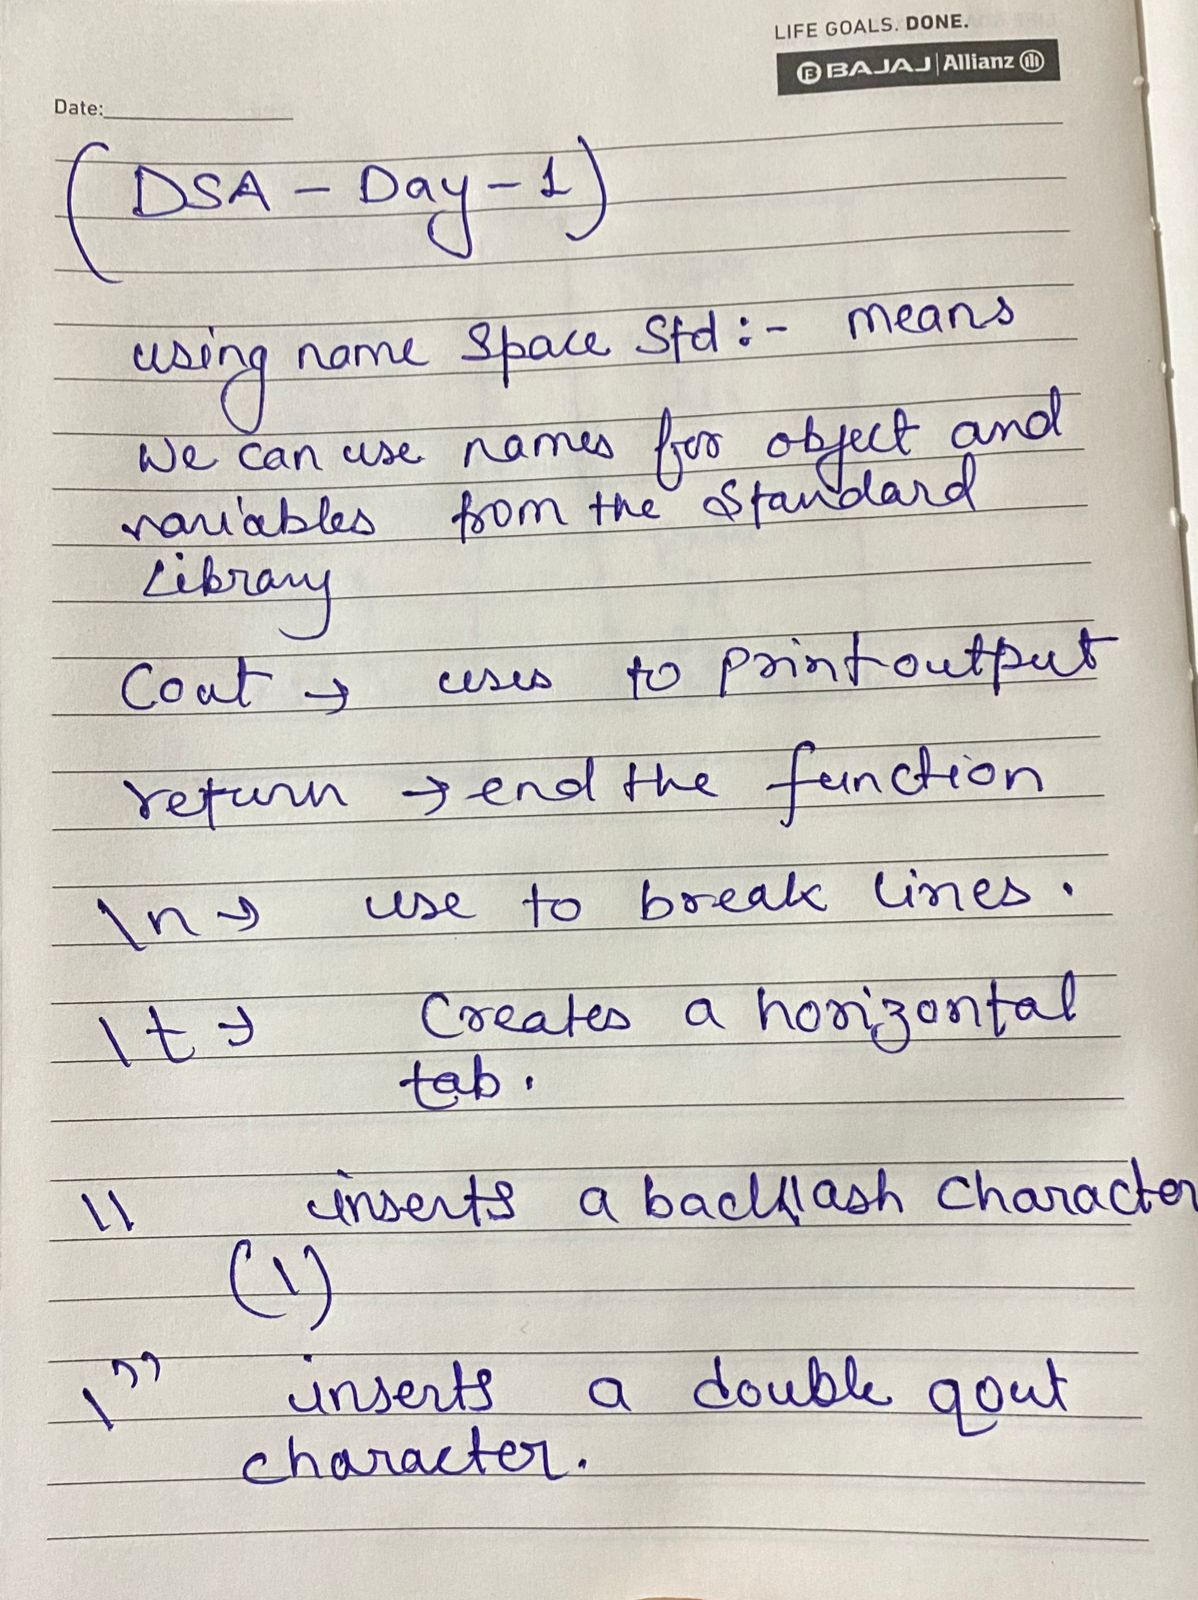 LIFE GOALS. DONE.
BAJAJ | Allianz
Date:
(DSA - Day - 1)
using name Space Std :- means
We can use names for object and
variables from the Standard
Library
Cout → uses to print output
return → end the function
\n → use to break lines.
\t → Creates a horizontal
tab.
\\ inserts a backflash character
(\)
\" inserts a double qout
character.